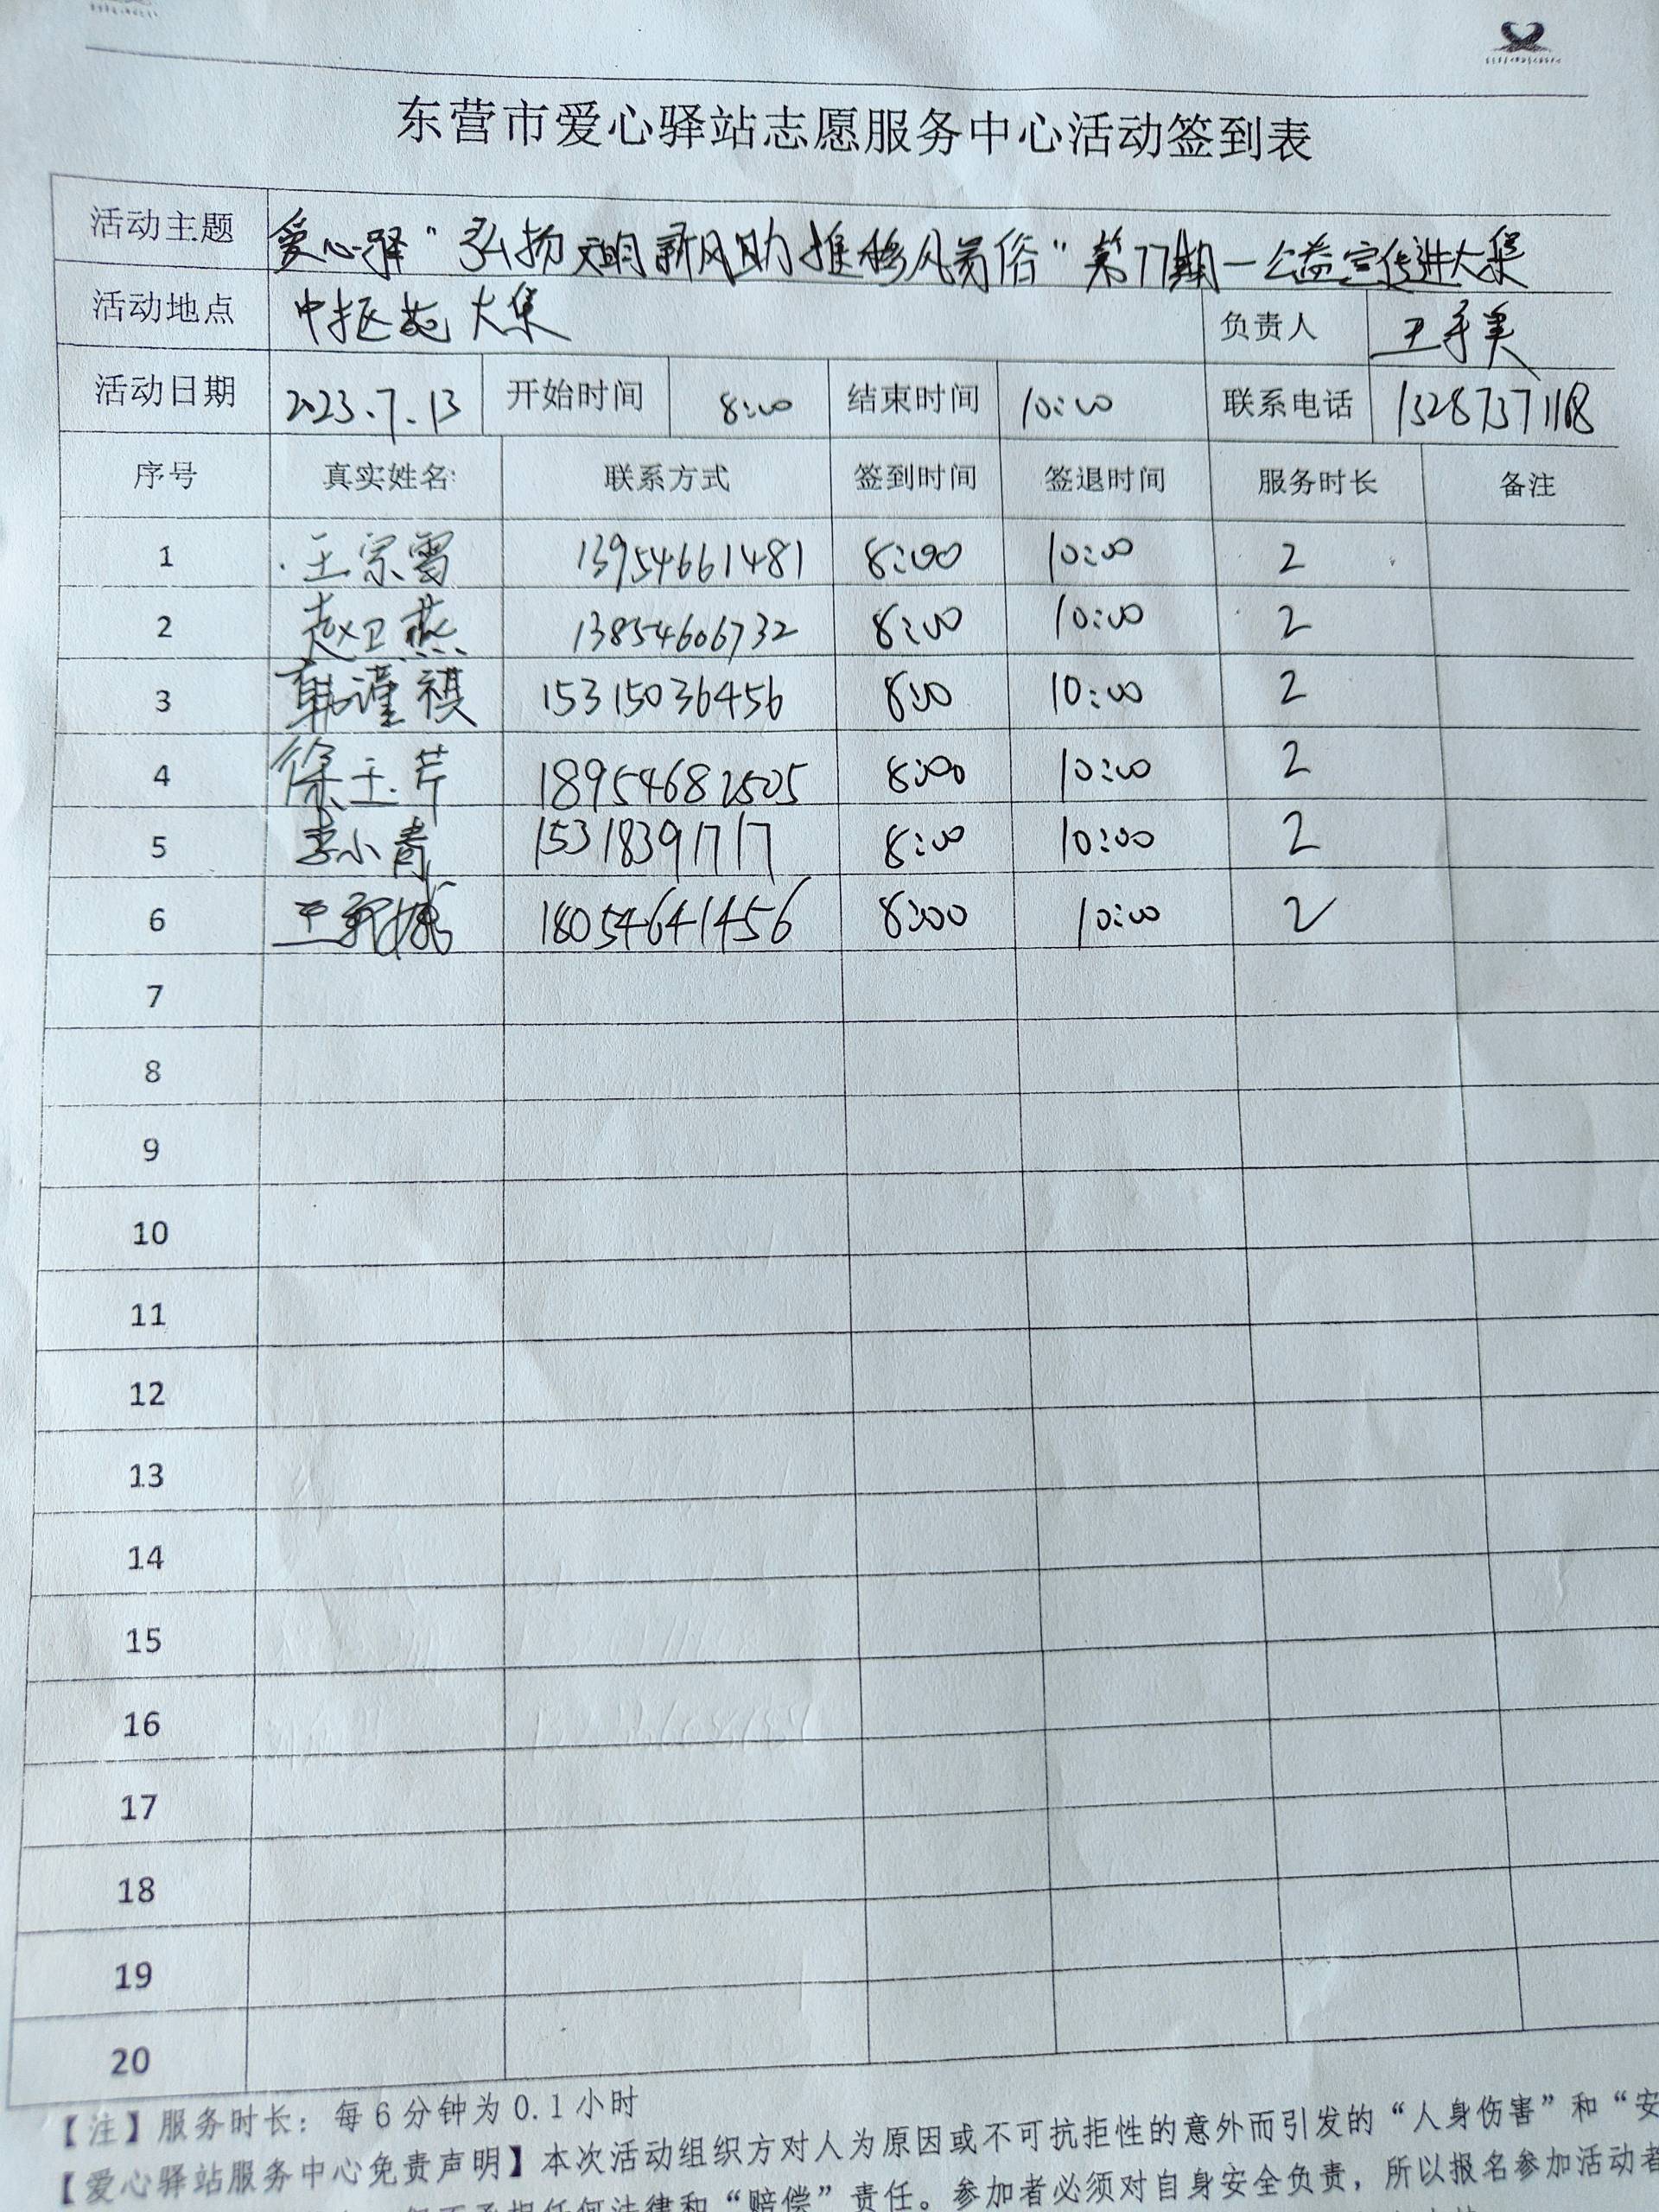 东营市爱心驿站志愿服务中心活动签到表
活动主题 爱心驿“弘扬文明新风助推移风易俗”第77期—公益宣传进大集
活动地点 中抠苑大集 负责人 王秀美
活动日期 2023.7.13 开始时间 8:00 结束时间 10:00 联系电话 13287371118
序号 真实姓名 联系方式 签到时间 签退时间 服务时长 备注
1 王宗雪 13954661481 8:00 10:00 2
2 赵卫燕 13854606732 8:00 10:00 2
3 韩谨祺 15315036456 8:00 10:00 2
4 徐玉芹 18954682505 8:00 10:00 2
5 李小青 15318391717 8:00 10:00 2
6 王 18054641456 8:00 10:00 2
7
8
9
10
11
12
13
14
15
16
17
18
19
20
【注】服务时长：每6分钟为0.1小时
【爱心驿站服务中心免责声明】本次活动组织方对人为原因或不可抗拒性的意外而引发的“人身伤害”和“安
任何法律和“赔偿”责任。参加者必须对自身安全负责，所以报名参加活动者